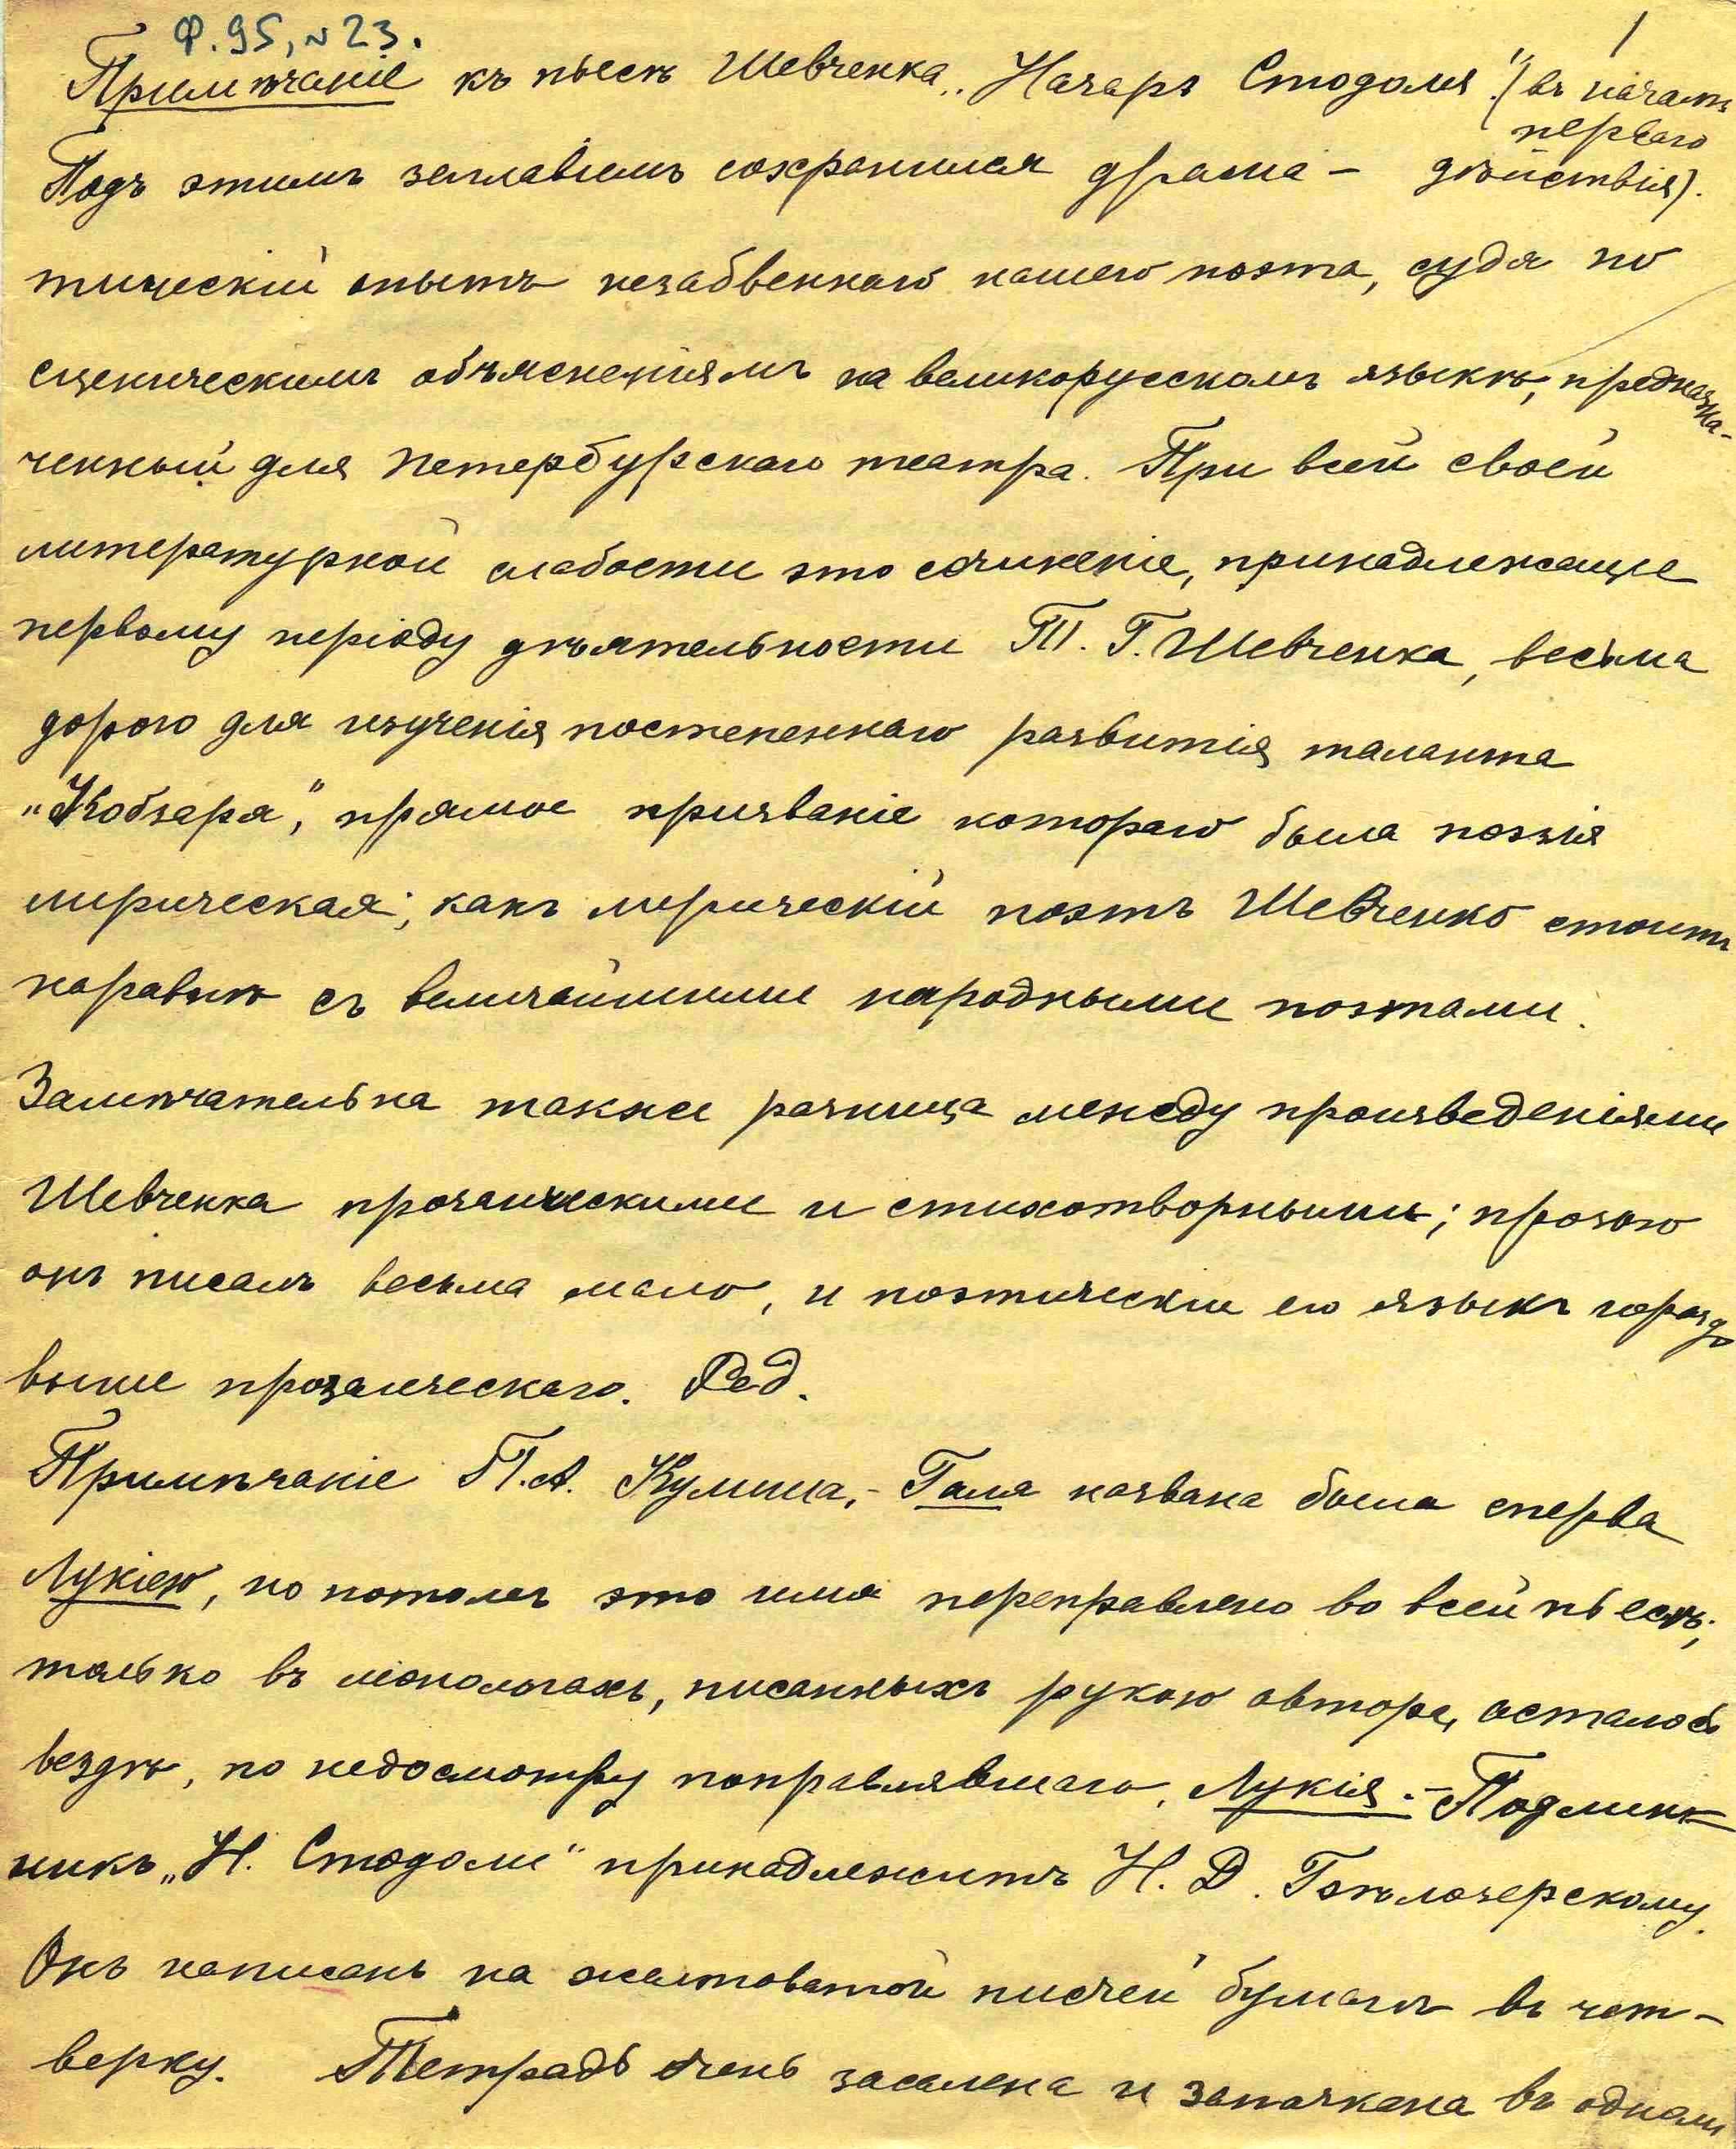 Ф. 95, № 23.
1
Примѣчаніе къ пьесѣ Шевченка „Назаръ Стодоля" (въ началѣ
перваго
дѣйствія).
Подъ этимъ заглавіемъ сохранился драма-
тическій опытъ незабвеннаго нашего поэта, судя по
сценическимъ объясненіямъ на великорусскомъ языкѣ, предназна-
ченный для Петербургскаго театра. При всей своей
литературной слабости это сочиненіе, принадлежащее
первому періоду дѣятельности Т. Г. Шевченка, весьма
дорого для изученія постепеннаго развитія таланта
„Кобзаря", прямое призваніе котораго была поэзія
лирическая; какъ лирическій поэтъ Шевченко стоитъ
наравнѣ съ величайшими народными поэтами.
Замѣчательна также разница между произведеніями
Шевченка прозаическими и стихотворными; прозою
онъ писалъ весьма мало, и поэтическій его языкъ гораздо
выше прозаическаго. Ред.
Примѣчаніе П. А. Кулиша, - Галя названа была сперва
Лукіею, но потомъ это имя переправлено во всей пьесѣ;
только въ монологахъ, писанныхъ рукою автора, осталось
вездѣ, по недосмотру поправлявшаго, Лукія. - Подлин-
никъ „Н. Стодоли" принадлежитъ Н. Д. Бѣлозерскому.
Онъ написанъ на желтоватой писчей бумагѣ въ чет-
верку. Тетрадь очень засалена и запачкана въ одномъ